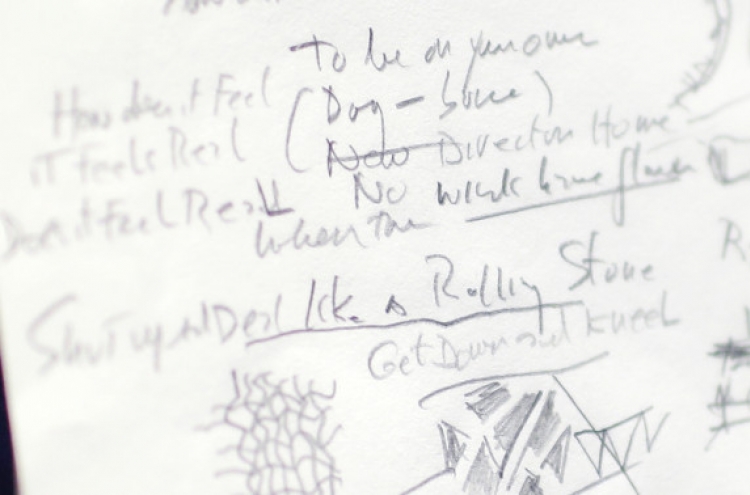 To be on your own
How does it Feel
(Dog-bone)
iT feels Real
New Direction Home
Does it Feel Real
No
When
Shut up and Deal like a Rolling Stone
Get Down and Kneel